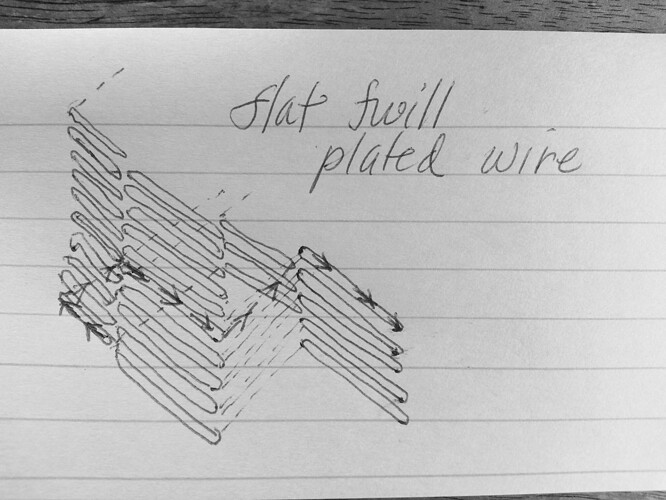 flat twill
plated wire